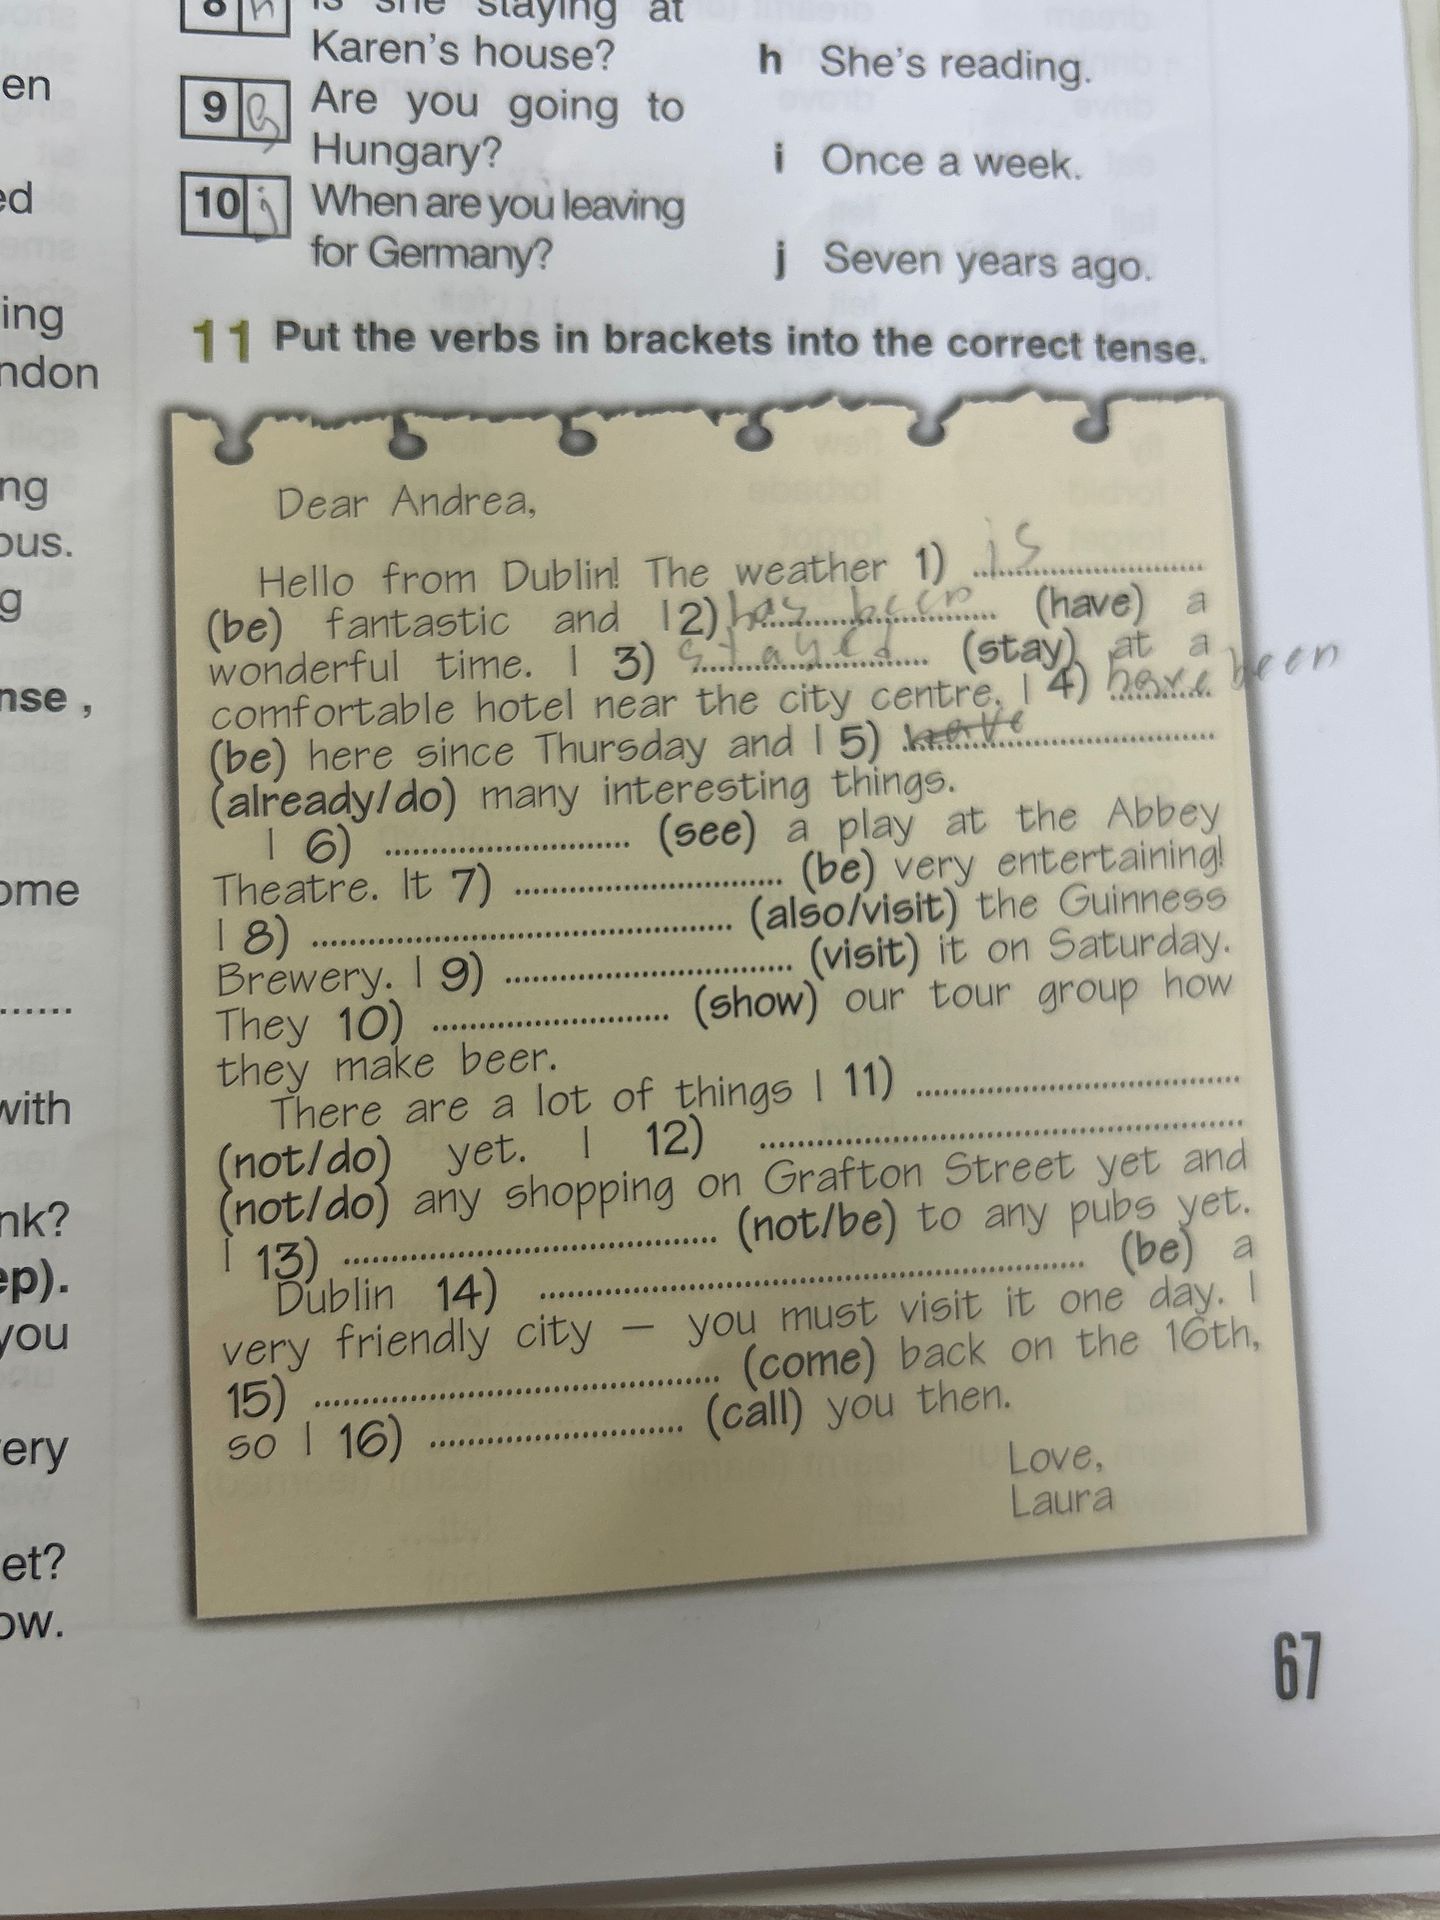 en
ed
ing
ndon
ng
ous.
g
nse ,
ome
......
with
nk?
ep).
you
ery
et?
ow.
8 h is she staying at
Karen's house?
9 g Are you going to
Hungary?
10 j When are you leaving
for Germany?
h She's reading.
i Once a week.
j Seven years ago.
11 Put the verbs in brackets into the correct tense.
Dear Andrea,
Hello from Dublin! The weather 1) is
(be) fantastic and I 2) has been (have) a
wonderful time. I 3) stayed (stay) at a
comfortable hotel near the city centre. I 4) have been
(be) here since Thursday and I 5) have
(already/do) many interesting things.
I 6) .......................... (see) a play at the Abbey
Theatre. It 7) ............................. (be) very entertaining!
I 8) ............................................. (also/visit) the Guinness
Brewery. I 9) ............................... (visit) it on Saturday.
They 10) .......................... (show) our tour group how
they make beer.
There are a lot of things I 11) ...................................
(not/do) yet. I 12) ....................................................
(not/do) any shopping on Grafton Street yet and
I 13) ........................................ (not/be) to any pubs yet.
Dublin 14) .......................................................... (be) a
very friendly city – you must visit it one day. I
15) ........................................... (come) back on the 16th,
so I 16) ........................... (call) you then.
Love,
Laura
67